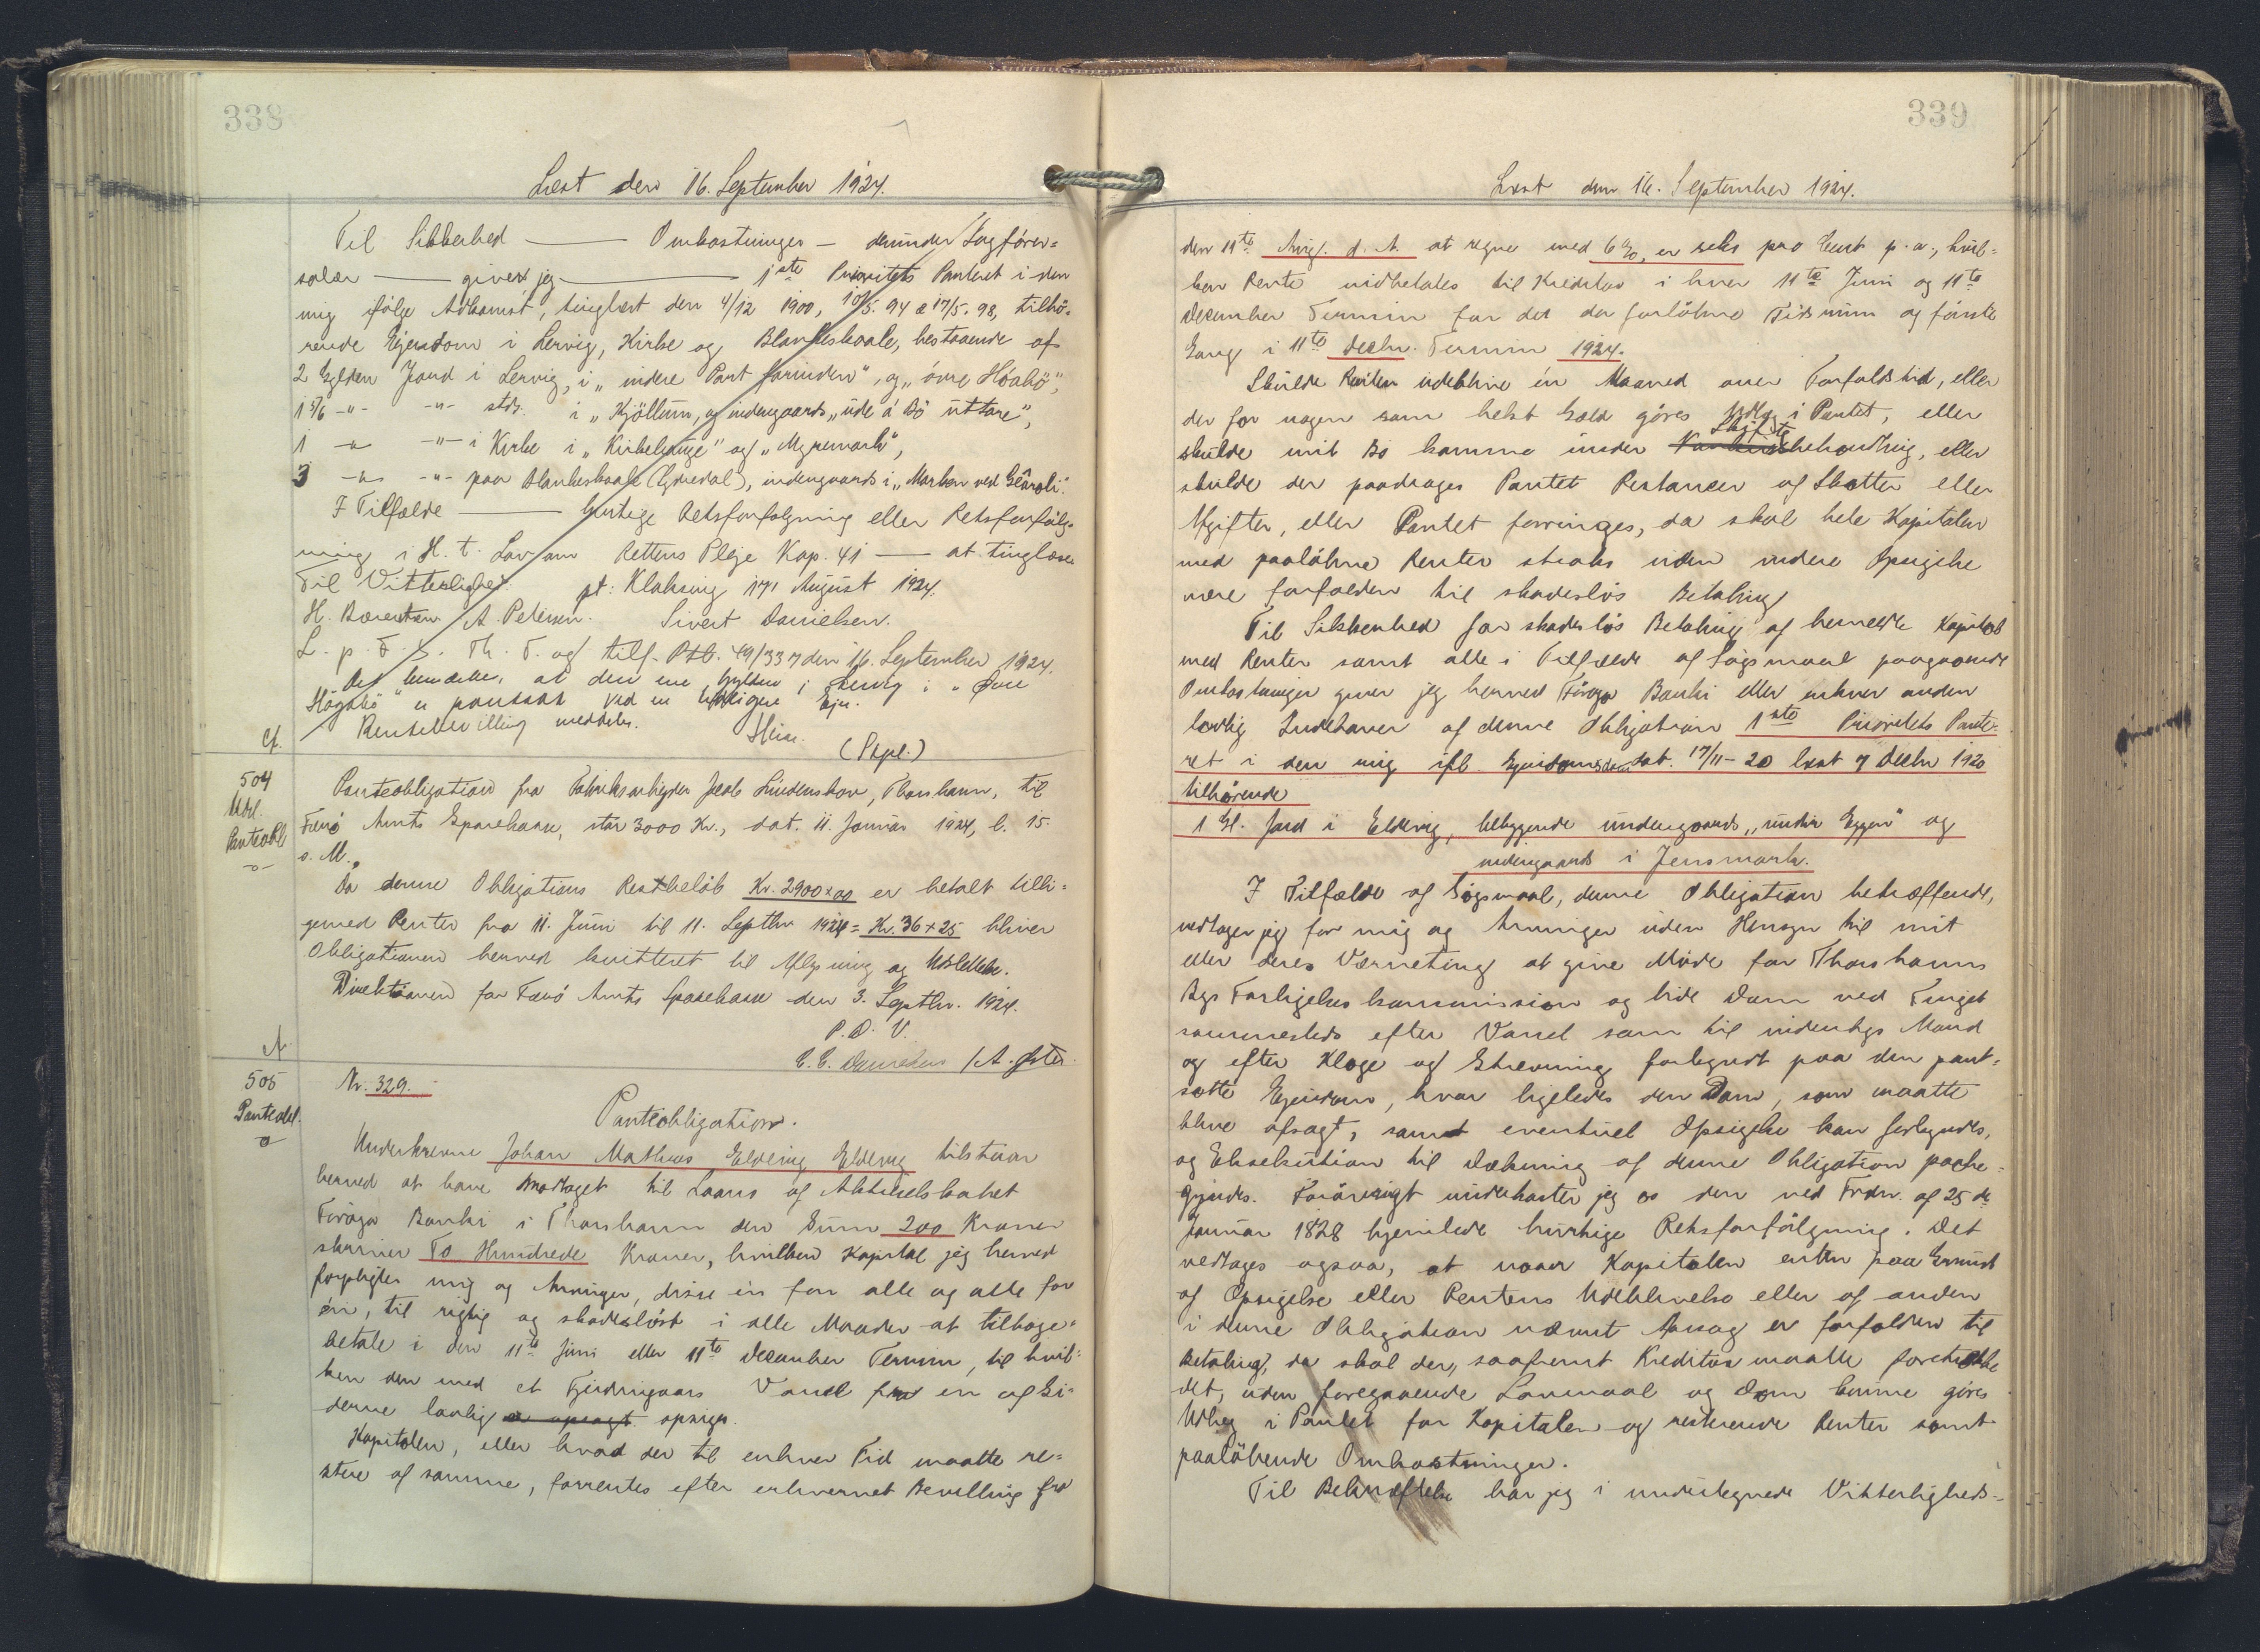 338
Læst den 16. September 1924.
Til Sikkerhed — Omkostninger — derunder Sagfører=
salær — giver jeg — 1ste Prioritets Panteret i den
mig ifølge Adkomst, tinglæst den 4/12 1900, 10/5. 94 & 17/5. 98, tilhø=
rende Ejendom i Lervig, Kirke og Blankeskaale, bestaaende af
2 Gylden Jord i Lervig, i „indere Part forinden", og „övre Höabö",
1 5/6 -"- -"- stds. i „Kjöllum, og indengaards „ude á Bö uttare",
1 -"- -"- i Kirke i „Kirkelejuge" og „Myremark",
3 -"- -"- paa Blankeskaale (Gydedal), indengaards i „Marken ved
I Tilfælde — hurtige Retsforfølgning eller Retsforfølg=
ning i H. t. Lov om Rettens Pleje Kap. 41 — at tinglæse.
Til Vitterlighed: pt. Klaksvig 17/ August 1924.
H. Bærentsen A. Petersen. Sivert Danielsen.
L. p. F. S. Th. T. og tilf. Ptb. 49/337 den 16. September 1924.
Det bemærkes, at den ene Gylden i Lervig i „övre
Högabö" er pantsat ved en tidligere Ejer.
Rentebevilling meddeles. Heise.
Cf.
(Stpl.)
504
Udsl.
Panteobl
Panteobligation fra Fabriksarbejder Jacob Lindenskov, Thorshavn, til
Færö Amts Sparekasse, stor 3000 Kr., dat. 11. Januar 1924, l. 15.
s. M.
Da denne Obligations Restbeløb Kr. 2900 x 00 er betalt tilli=
gemed Renter fra 11. Juni til 11. Septbr 1924 = Kr. 36 + 25 bliver
Obligationen herved kvitteret til Aflysning og Udslettelse.
Direktionen for Færö Amts Sparekasse den 3. Septbr. 1924.
P. D. V.
C. C. Danielsen / A.
505
Panteobl.
Nr. 329.
Panteobligation.
Underskrevne Johan Mathias Eldevig Eldevig tilstaar
herved at have modtaget til Laans af Aktieselskabet
Föroya Banki i Thorshavn den Sum 200 Kroner
skriver To Hundrede Kroner, hvilken Kapital jeg herved
forpligter mig og Arvinger, disse én for alle og alle for
én, til rigtig og skadesløst i alle Maader at tilbage=
betale i den 11te Juni eller 11te December Termin, til hvil=
ken den med et Fjerdingaars Varsel fra én af Si=
derne lovlig er opsagt opsiges.
Kapitalen, eller hvad der til enhver Tid maatte re=
stere af samme, forrentes efter erhvervet Bevilling fra
339
Læst den 16. September 1924.
den 11te Aug. d. A. at regne med 6 %, er seks pro Cent p. a., hvil=
ken Rente udbetales til Kreditor i hver 11te Juni og 11te
December Termin for det da forløbne Tidsrum og første
Gang i 11te Decbr. Termin 1924.
Skulde Renten udeblive én Maaned over Forfaldstid, eller
der for nogen som helst Gæld gøres Udlæg i Pantet, eller
skulde mit Bo komme under Konkurs Skifte behandling, eller
skulde der paadrages Pantet Restancer af Skatter eller
Afgifter, eller Pantet forringes, da skal hele Kapitalen
med paaløbne Renter straks uden videre Opsigelse
være forfalden til skadesløs Betaling
Til Sikkerhed for skadesløs Betaling af bemeldte Kapital
med Renter samt alle i Tilfælde af Søgsmaal paagaaende
Omkostninger giver jeg herved Föroya Banki eller enhver anden
lovlig Indehaver af denne Obligation 1ste Prioritets Pante=
ret i den mig ifl. Ejendomsdom dat. 17/11 - 20 læst 7 Decbr 1920
tilhørende
1 Gl. Jord i Eldevig, beliggende indengaards „undir Eggini" og
indengaards i Jensmark.
I Tilfælde af Søgsmaal, denne Obligation betræffende,
vedtager jeg for mig og Arvinger uden Hensyn til mit
eller deres Værneting at give Møde for Thorshavns
Bys Forligelseskommission og lide Dom ved Tinget
sammesteds efter Varsel som til indenbys Mand
og efter Klage og Stævning forkyndt paa den pant=
satte Ejendom, hvor ligeledes den Dom, som maatte
blive afsagt, samt eventuel Opsigelse kan forkyndes,
og Eksekution til Dækning af denne Obligation paabe=
gyndes. Forøvrigt underkaster jeg os den ved Frdn. af 25de
Januar 1828 hjemlede hurtige Retsforfølgning. Det
vedtages ogsaa, at naar Kapitalen enten paa Grund
af Opsigelse eller Rentens Udeblivelse eller af anden
i denne Obligation nævnt Aarsag er forfalden til
Betaling, da skal der, saafremt Kreditor maatte foretrække
det, uden foregaaende Lovmaal og Dom kunne gøres
Udlæg i Pantet for Kapitalen og resterende Renter samt
paaløbende Omkostninger.
Til Bekræftelse har jeg i undertegnede Vitterligheds=